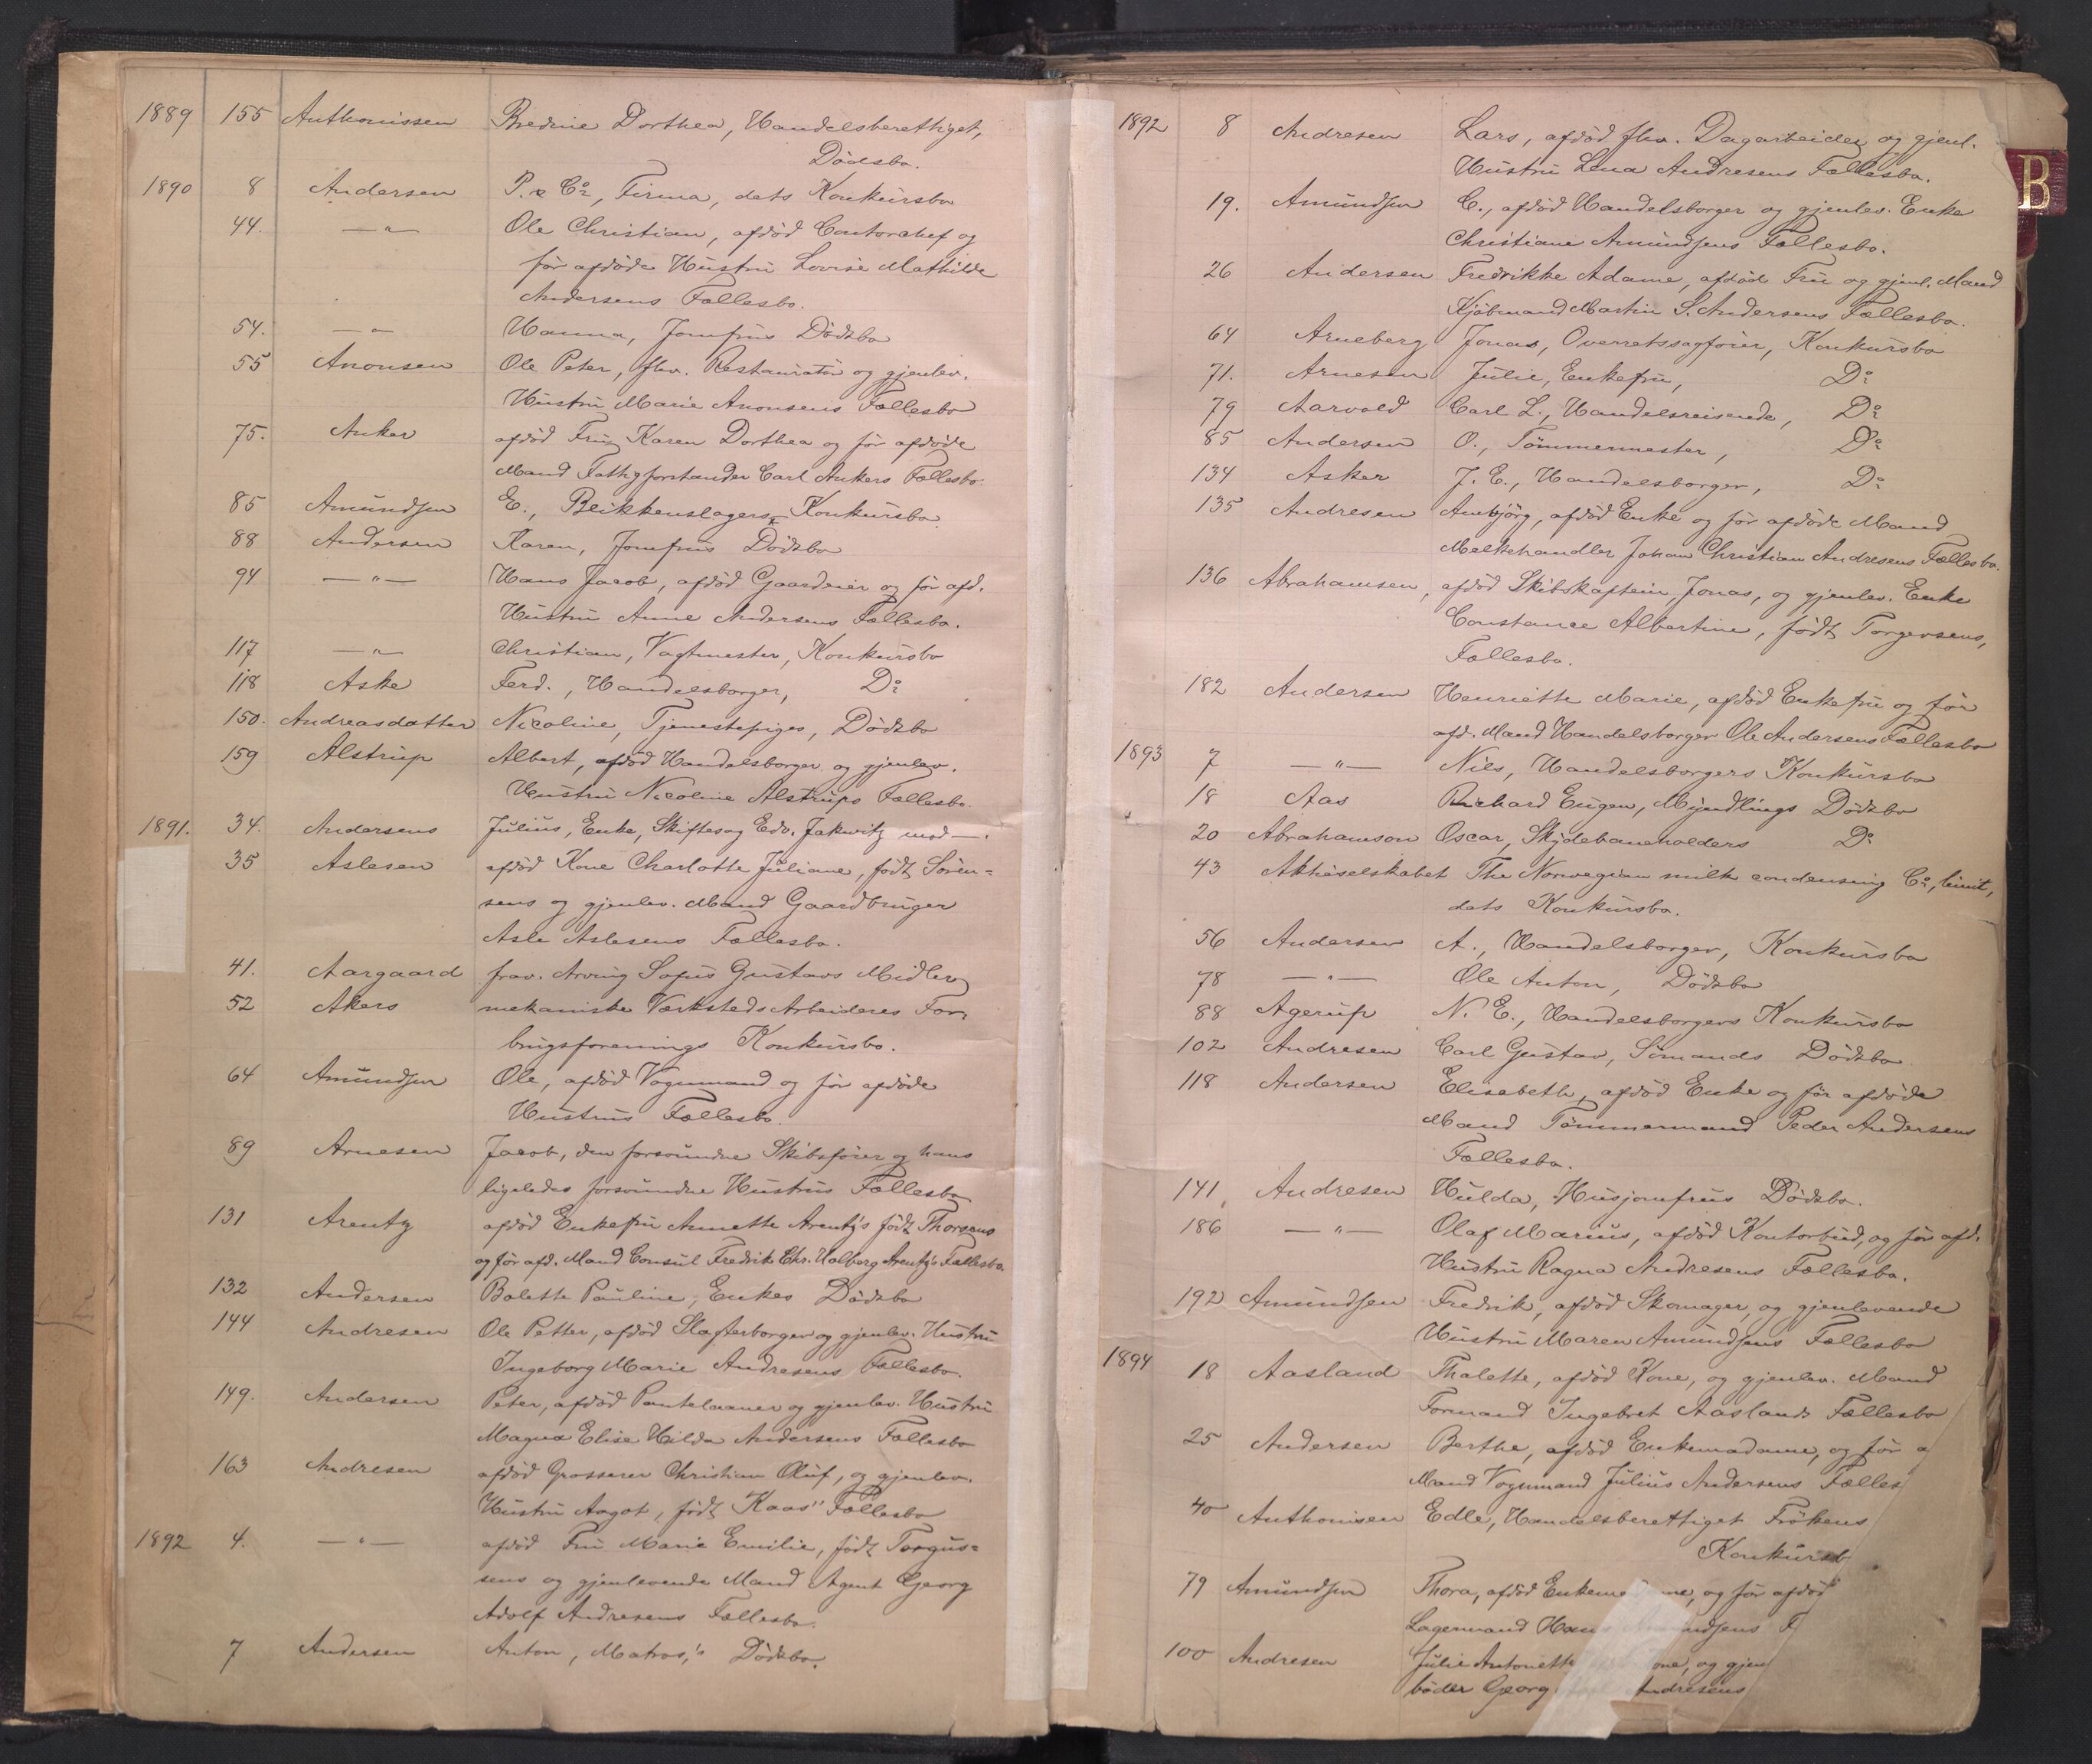 1889 155 Anthonissen Bredine Dorthea, Handelsberettiget,
Dødsbo.
1890 8 Andersen P. & Co, Firma, dets Konkursbo
44. — " — Ole Christian, afdöd Contorchef og
för afdöde Hustru Lovise Mathilde
Andersens Fællesbo.
54. — " — Hanna, Jomfrus Dödsbo
55 Anonsen Ole Peter, fhv. Restauratör og gjenlev.
Hustru Marie Anonsens Fællesbo
75. Anker afdöd Fru Karen Dorthea og för afdöde
Mand Fattigforstander Carl Ankers Fællesbo.
85 Amundsen E., Blikkenslagers Konkursbo.
88 Andersen Karen, Jomfrus Dödsbo
94 — " — Hans Jacob, afdöd Gaardeier og för afd.
Hustru Anne Andersens Fællesbo.
117 — " — Christian, Vagtmester, Konkursbo
118 Aske Ferd., Handelsborger, Do
150. Andreasdatter Nicoline, Tjenestepiges, Dödsbo
159 Alstrup Albert, afdöd Handelsborger og gjenlev.
Hustru Nicoline Alstrups Fællesbo.
1891. 34. Andersens Julius, Enke, Skiftesag Edv. Jakwitz mod —.
35 Aslesen afdöd Kone Charlotte Juliane, födt Sören=
sens og gjenlev. Mand Gaardbruger
Asle Aslesens Fællesbo.
41. Aargaard frav. Arving Sofus Gustavs Midler
52 Akers mekaniske Værksteds Arbeideres For-
brugsforenings Konkursbo.
64 Amundsen Ole, afdöd Vognmand og för afdöde
Hustrus Fællesbo.
89 Arnesen Jacob, den forsvundne Skibsförer og hans
ligeledes forsvundne Hustrus Fællesbo
131 Arentz afdöd Enkefru Annette Arentz's födt Thorsens
og för afd. Mand Consul Fredrik Chr. Holberg Arentz's Fællesbo.
132 Andersen Bolette Pauline, Enkes Dödsbo
144 Andresen Ole Petter, afdöd Slagterborger og gjenlev. Hustru
Ingeborg Marie Andresens Fællesbo.
149. Andersen Peter, afdöd Pantelaaner og gjenlev. Hustru
Magna Elise Hilda Andersens Fællesbo
163 Andresen afdöd Grosserer Christian Oluf, og gjenlev.
Hustru Aagot, födt Kaas" Fællesbo
1892 4. — " — afdöd Fru Marie Emilie, födt Torgus=
sens og gjenlevende Mand Agent Georg
Adolf Andresens Fællesbo.
7 Andersen Anton, Matros's Dödsbo.
1892 8 Andresen Lars, afdöd fhv. Dagarbeider og gjenl.
Hustru Lina Andresens Fællesbo.
19. Amundsen C., afdöd Handelsborger og gjenlev. Enke
Christiane Amundsens Fællesbo.
26 Andersen Fredrikke Adame, afdöd Fru og gjenl. Mand
Kjöbmand Martin S. Andersens Fællesbo.
64 Arneberg Jonas, Overretssagförer, Konkursbo
71. Arnesen Julie, Enkefru, Do
79 Aarvold Carl L., Handelsreisende, Do
85 Andersen O., Tömmermester, Do
134 Asker J. E., Handelsborger, Do
135 Andresen Anbjörg, afdöd Enke og för afdöde Mand
Melkehandler Johan Christian Andresens Fællesbo.
136 Abrahamsen, afdöd Skibskaptein, Jonas, og gjenlev. Enke
Constance Albertine, födt Torgersens,
Fællesbo.
182 Andersen Henriette Marie, afdöd Enkefru og för
afd. Mand Handelsborger Ole Andersens Fællesbo
1893 7 — " — Nils, Handelsborgers Konkursbo
18 Aas Richard Eugen, Myndlings Dödsbo
20 Abrahamson Oscar, Skydebaneholders Do
43 Aktieselskabet The Norwegian milk condensing Co, limit,
dets Konkursbo.
56 Andersen A., Handelsborger, Konkursbo
78 — " — Ole Anton, Dödsbo
88 Agerup N. E., Handelsborgers Konkursbo
102 Andresen Carl Gustav, Sömands Dödsbo
118 Andersen Elisabeth, afdöd Enke og för afdöde
Mand Tömmermand Peder Andersens
Fællesbo.
141, Andresen Hulda, Husjomfrus Dödsbo.
186 — " — Olaf Marius, afdöd Kontorbud, og för afd.
Hustru Ragna Andresens Fællesbo.
192 Amundsen Fredrik, afdöd Skomager, og gjenlevende
Hustru Maren Amundsens Fællesbo
1894 18 Aasland Thalette, afdöd Kone, og gjenlev. Mand
Formand Ingebret Aaslands Fællesbo
25 Andersen Berthe, afdöd Enkemadame, og för a
Mand Vognmand Julius Andersens Fælles
40 Anthonisen Edle, Handelsberettiget Frökens
Konkursb
79 Amundsen Thora, afdöd Enkeme ne, og för afdöd
Lagermand Hans ndsens F
100 Andresen Julie Antonette one, og gjen
böder Georg ndresens
B